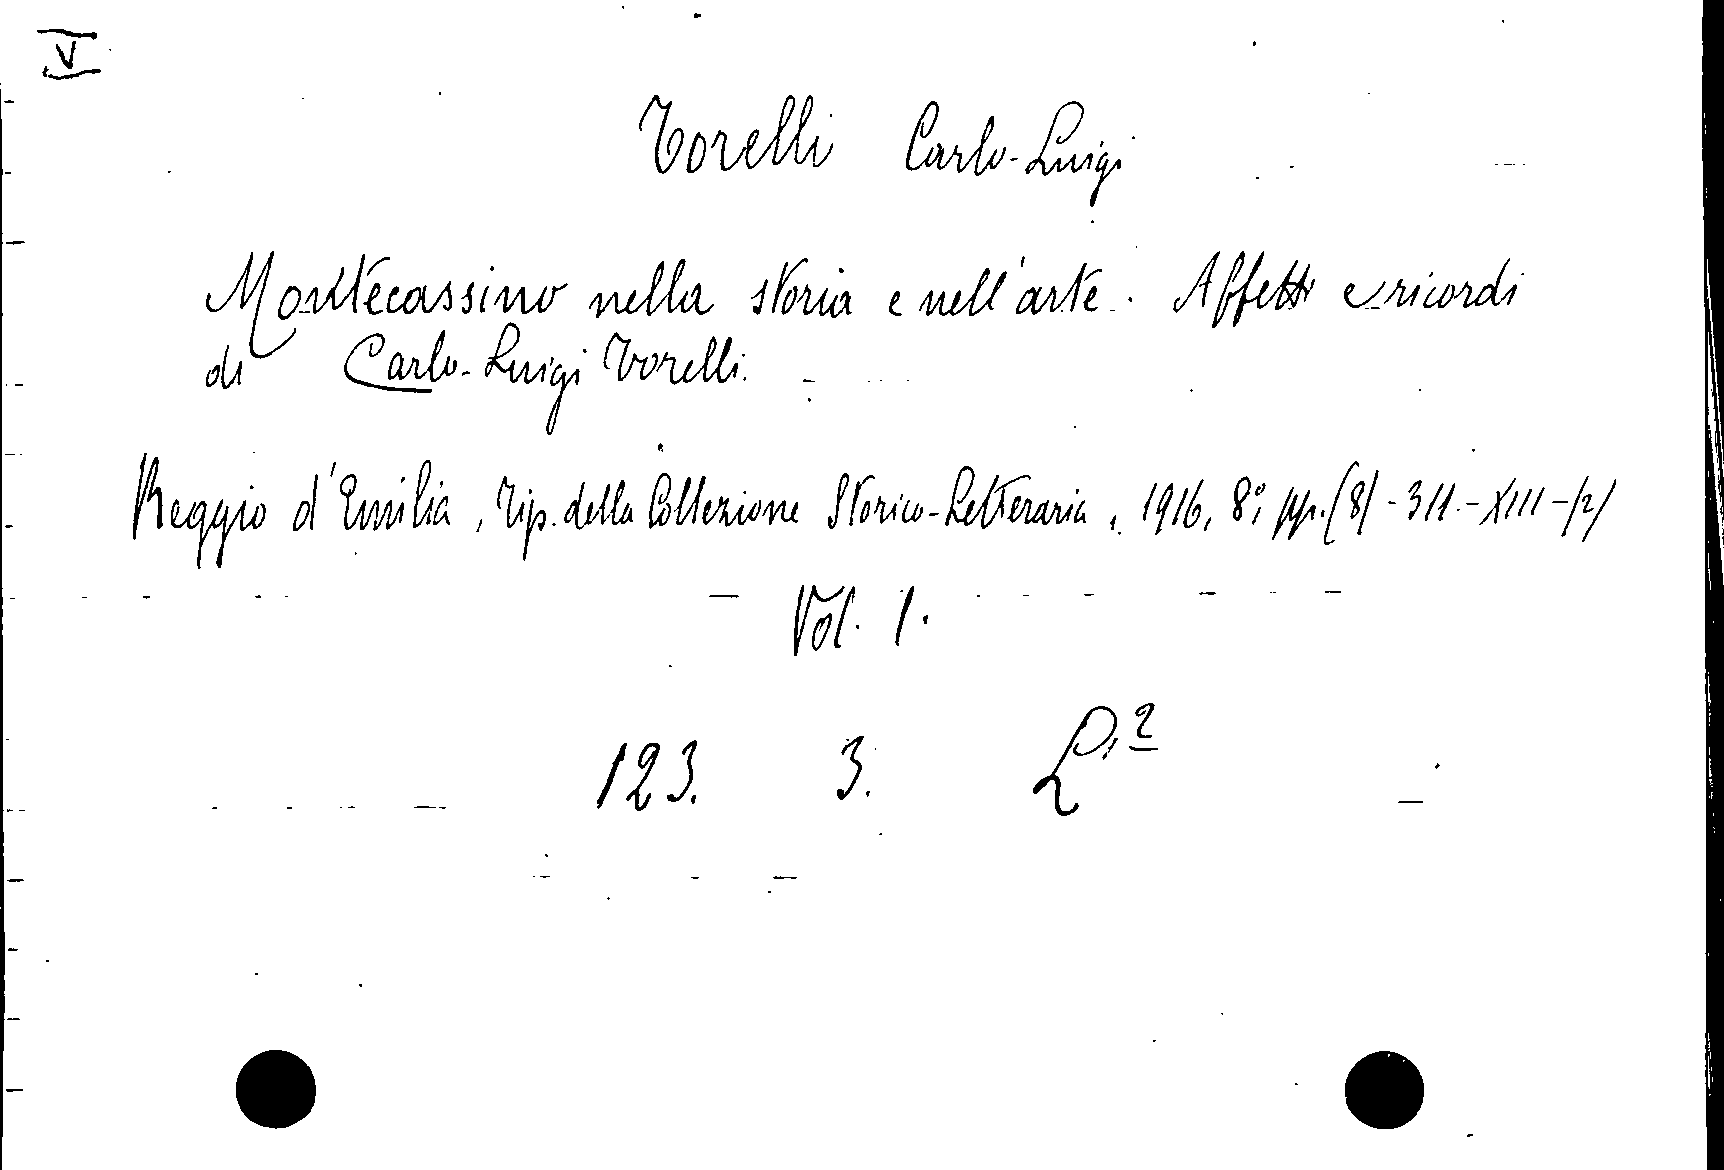 V
Torelli Carlo-Luigi
Montecassino nella storia e nell'arte. Affetti e ricordi
di Carlo-Luigi Torelli.
Reggio d'Emilia, Tip. della Collezione Storico-Letteraria, 1916, 8°, pp. (8) - 311 - XIII - (2)
Vol. 1.
123. 3. L,2